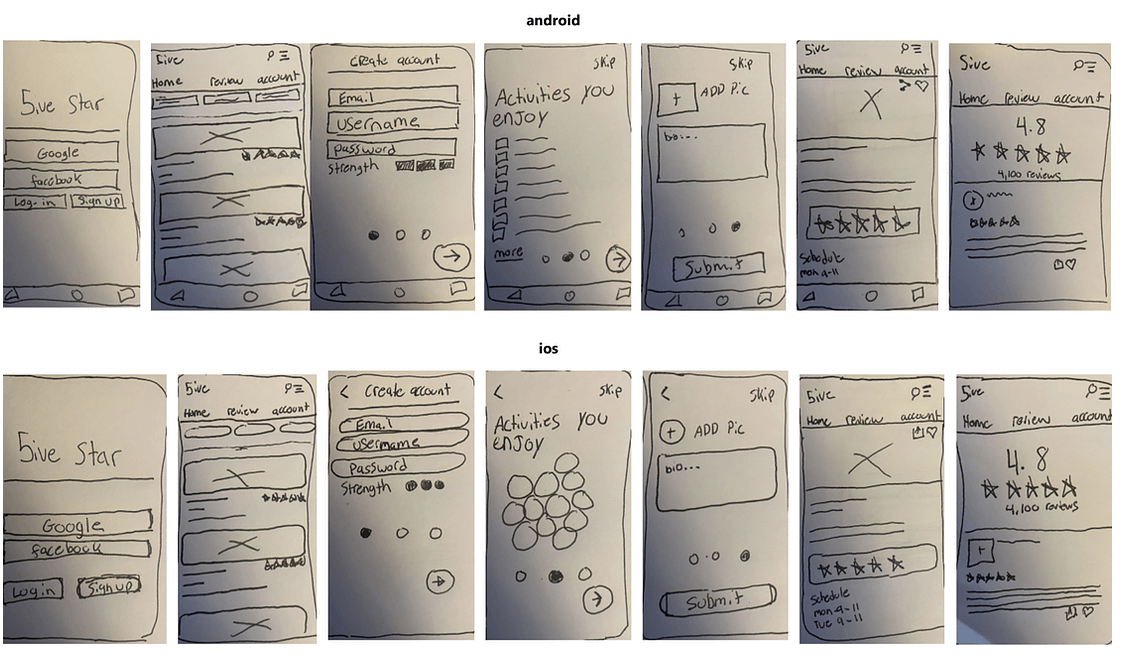 android
5ive Star
Google
facebook
Log-in
Sign up
5ive
Home review account
Create account
Email
Username
password
Strength
Skip
Activities you
enjoy
more
Skip
+ ADD Pic
bio...
Submit
5ive
Home review account
Schedule
mon 9-11
5ive
Home review account
4.8
4,100 reviews
ios
5ive Star
Google
facebook
Log in
Sign up
5ive
Home review account
< Create account
Email
username
password
Strength
< Skip
Activities you
enjoy
< Skip
+ ADD Pic
bio...
Submit
5ive
Home review account
Schedule
mon 9-11
Tue 9-11
5ive
Home review account
4.8
4,100 reviews
+